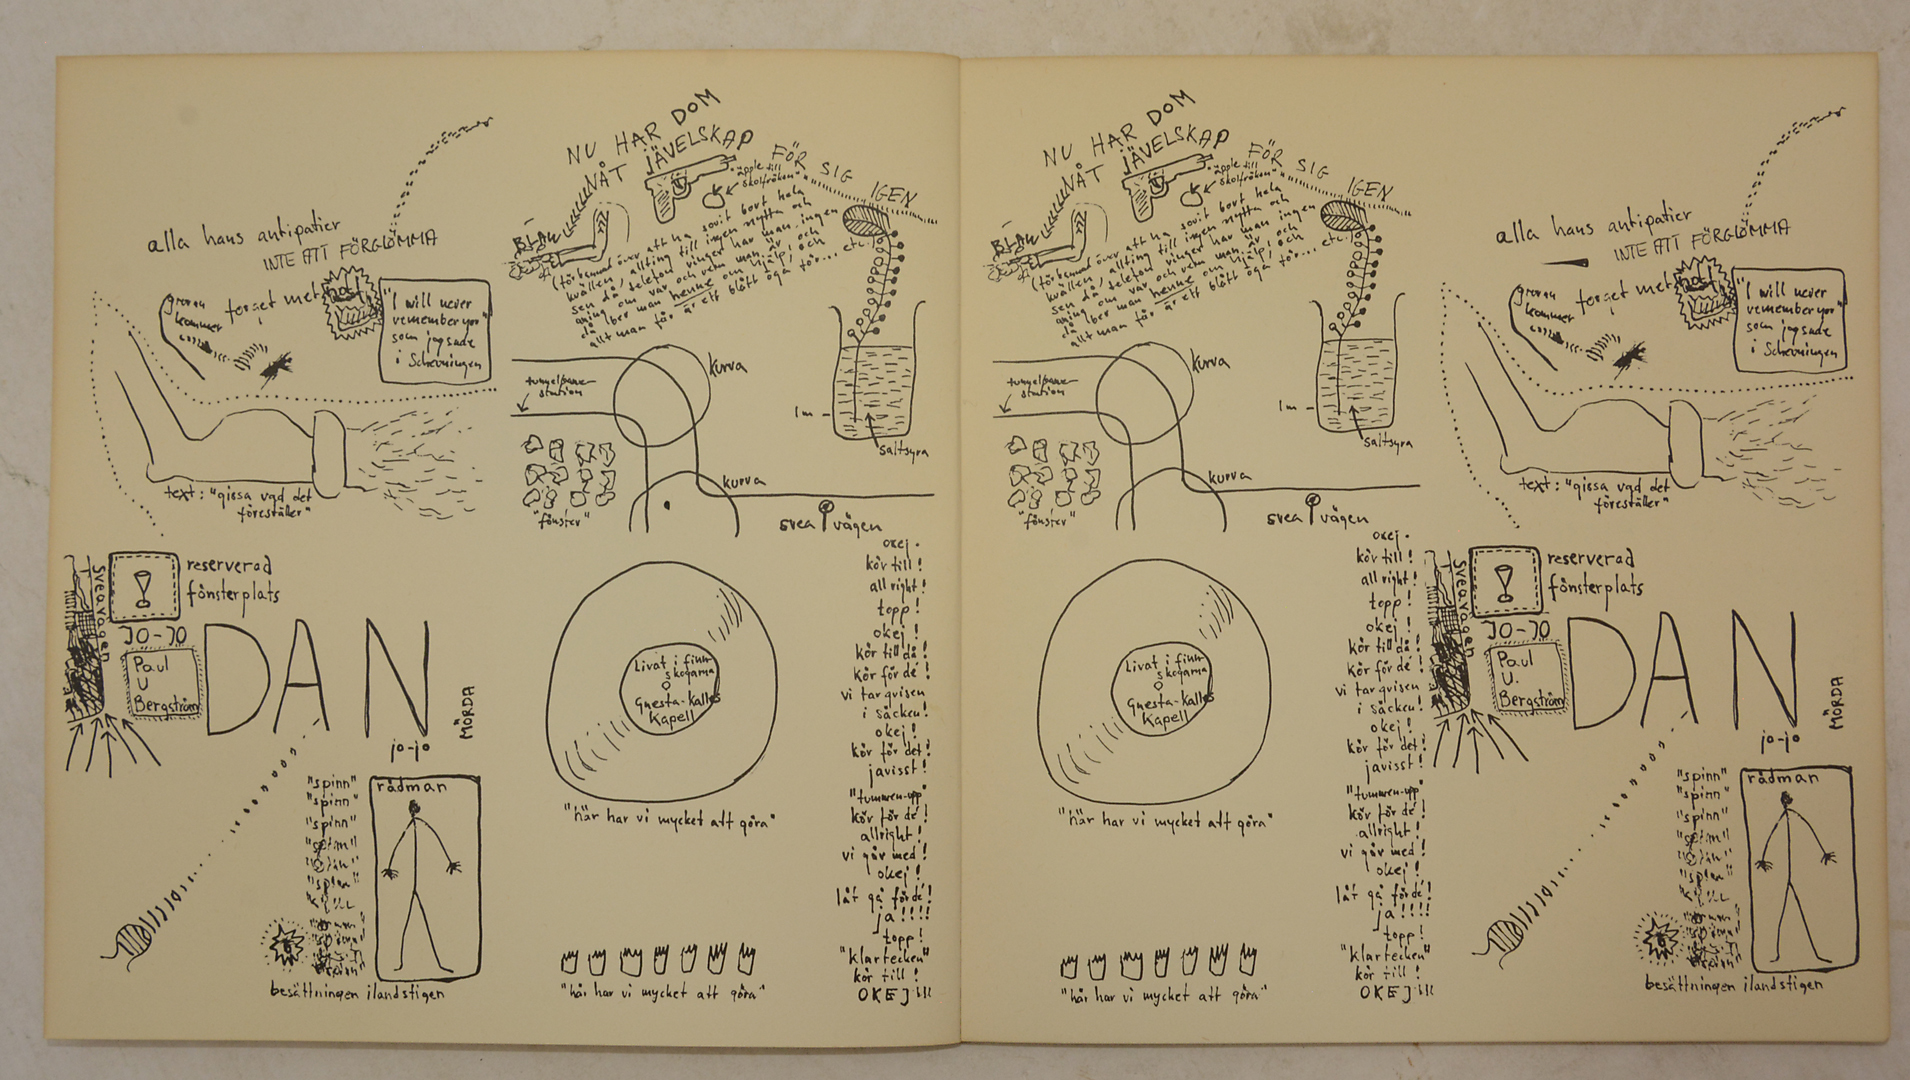 NU HAR DOM
NÅT JÄVELSKAP
FÖR SIG IGEN
"äpple till
skolfröken"
BLÄU
(förbannad över att ha sovit bort hela
kvällen, allting till ingen nytta och
sen då telefon ringer har man ingen
aning om var och vem man är och
då ber man henne om hjälp, och
allt man får är ett blått öga för... etc.)
alla hans antipatier
INTE ATT FÖRGLÖMMA
forget me
"I will never
remember you"
som jag sade
i Schevningen
kommer
text: "gissa vad det
föreställer"
tunnelbane
station
kurva
kurva
"fönster"
1m
saltsyra
svea vägen
Sveavägen
reserverad
fönsterplats
JO-JO
Paul
U
Bergström
DAN
jo-jo
MÖRDA
"spinn"
"spinn"
"spinn"
rådman
besättningen ilandstigen
Livat i finn
skogarna
Gnesta-Kalles
Kapell
"här har vi mycket att göra"
"här har vi mycket att göra"
okej.
kör till!
all right!
topp!
okej!
kör till då!
kör för dé!
vi tar grisen
i säcken!
okej!
kör för det!
javisst!
"tummen-upp"
kör för dé!
allright!
vi går med!
okej!
låt gå för dé!
ja!!!!
topp!
"klartecken"
kör till!
OKEJ!!!
NU HAR DOM
NÅT JÄVELSKAP
FÖR SIG IGEN
"äpple till
skolfröken"
BLÄU
(förbannad över att ha sovit bort hela
kvällen, allting till ingen nytta och
sen då telefon ringer har man ingen
aning om var och vem man är och
då ber man henne om hjälp, och
allt man får är ett blått öga för... etc.)
tunnelbane
station
kurva
kurva
"fönster"
1m
saltsyra
svea vägen
Livat i finn
skogarna
Gnesta-Kalles
Kapell
"här har vi mycket att göra"
"här har vi mycket att göra"
okej.
kör till!
all right!
topp!
okej!
kör till då!
kör för dé!
vi tar grisen
i säcken!
okej!
kör för det!
javisst!
"tummen-upp"
kör för dé!
allright!
vi går med!
okej!
låt gå för dé!
ja!!!!
topp!
"klartecken"
kör till!
OKEJ!!!
alla hans antipatier
INTE ATT FÖRGLÖMMA
forget me
"I will never
remember you"
som jag sade
i Schevningen
kommer
text: "gissa vad det
föreställer"
Sveavägen
reserverad
fönsterplats
JO-JO
Paul
U.
Bergström
DAN
jo-jo
MÖRDA
"spinn"
"spinn"
"spinn"
rådman
besättningen ilandstigen